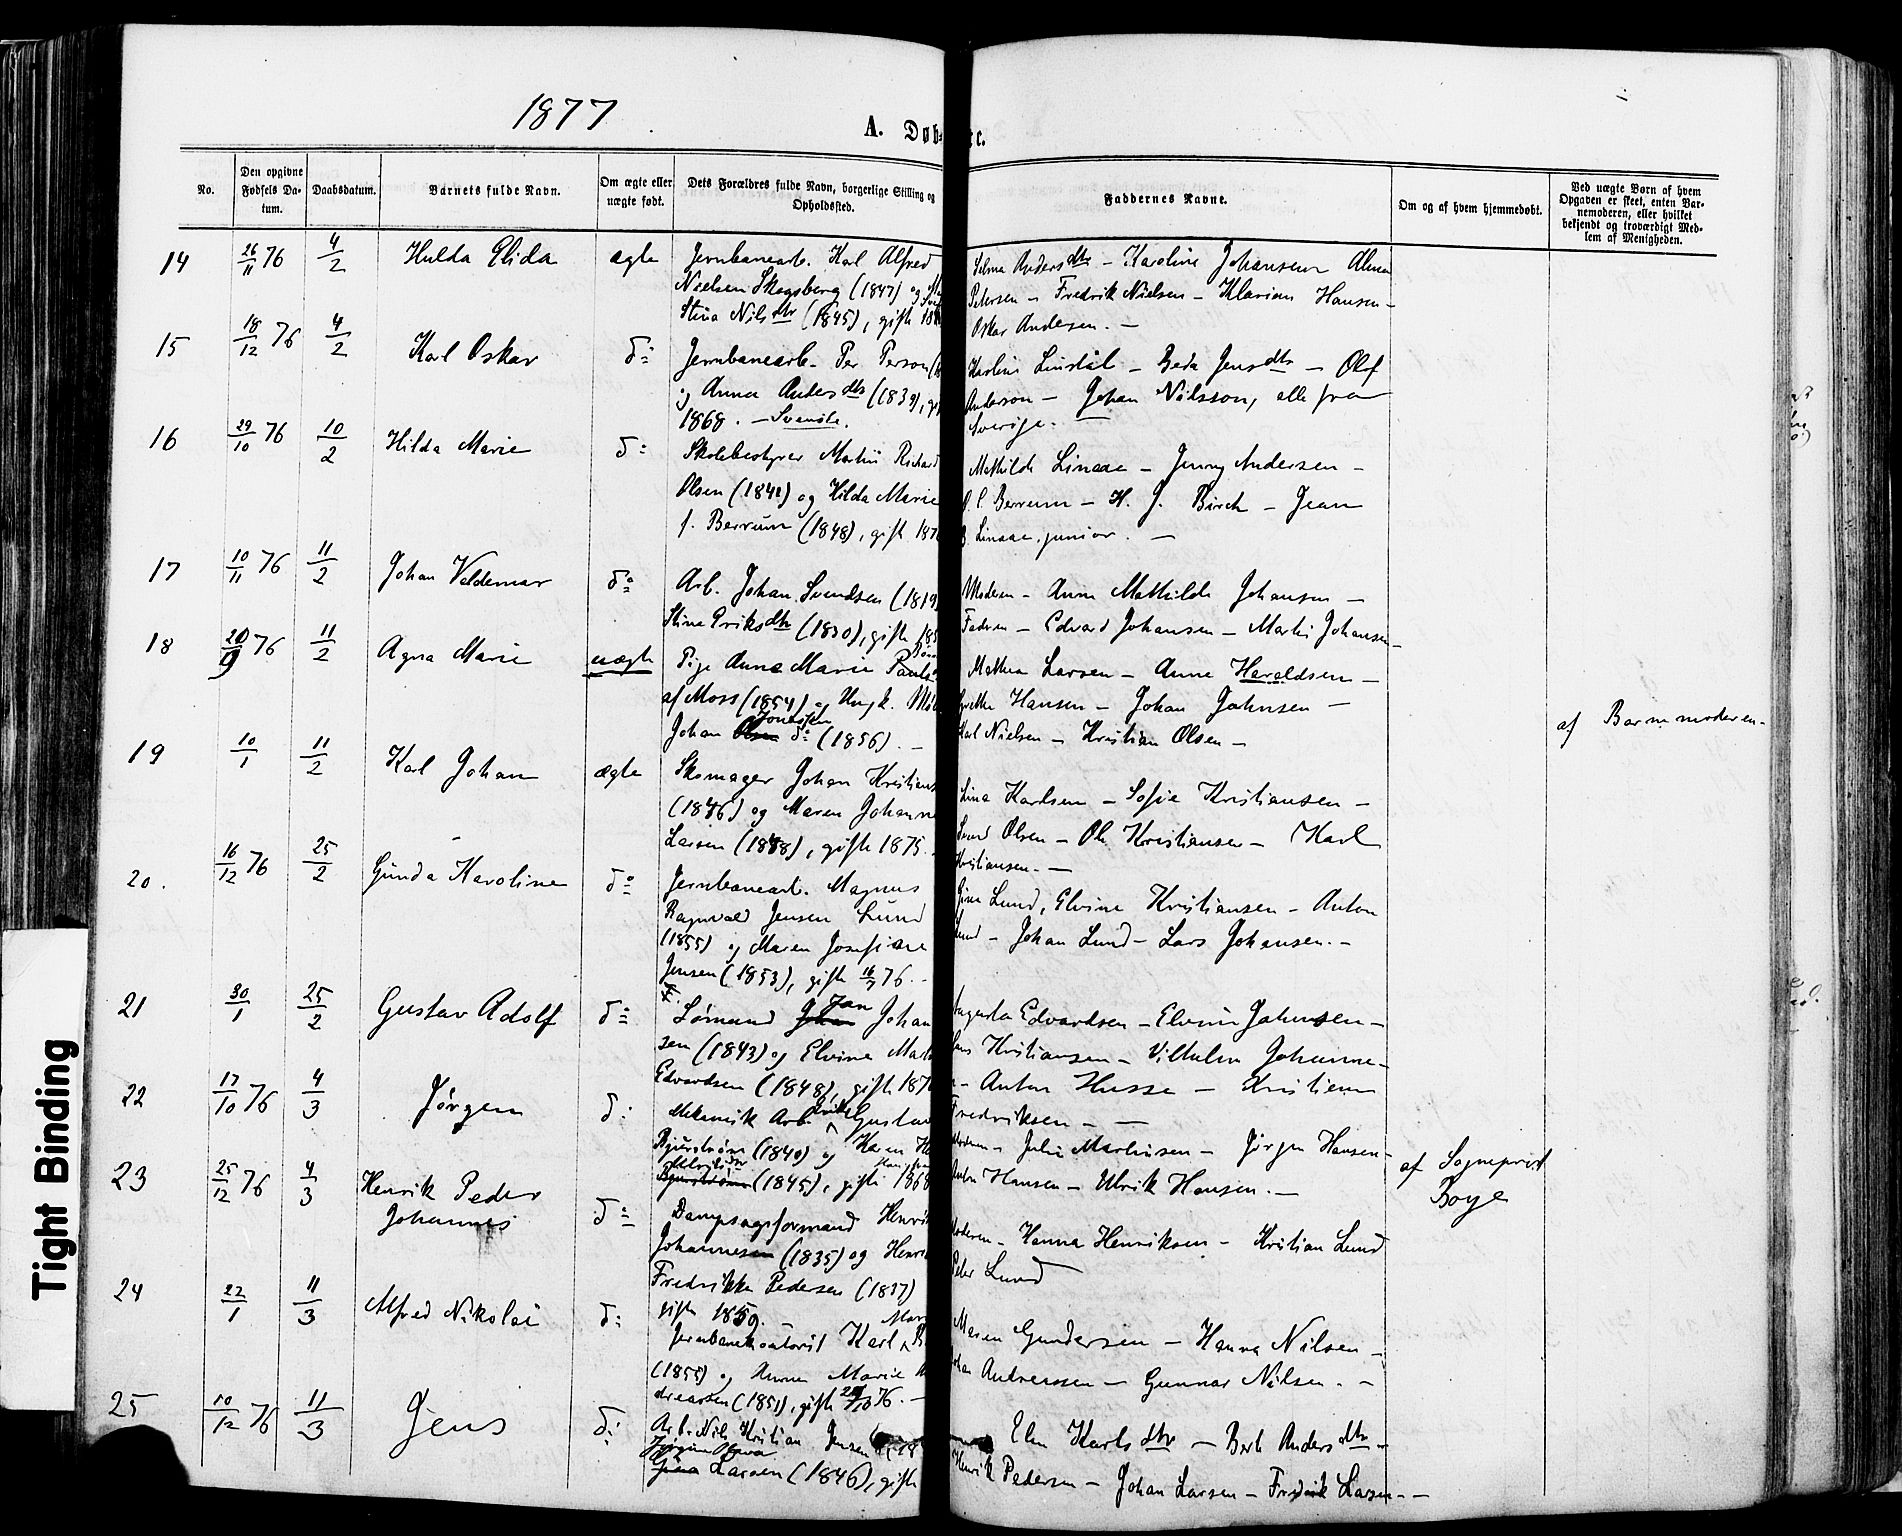 1877
A. Døb c.
No.
Den opgivne Fødsels Datum.
Daabsdatum.
Barnets fulde Navn.
Om ægte eller uægte født.
Dets Forældres fulde Navn, borgerlige Stilling og Opholdssted.
Faddernes Navne.
Om og af hvem hjemmedøbt.
Ved uægte Børn af hvem Opgaven er skeet, enten Barnemoderen, eller hvilket bekjendt og troværdigt Medlem af Menigheden.
14 26/11 76 4/2 Hulda Elida ægte Jernbanearb. Karl Alfred
Nielsen Skogsberg (1847) og
Stina Nilsdtr (1845), gift
Selma Andersdtr - Karoline Johansen
Petersen - Fredrik Nielsen - Klarion Hansen -
Oskar Andersen. -
15 18/12 76 4/2 Karl Oskar do Jernbanearb. Per Person
og Anna Andersdtr (1839),
1868. - Svenske.
Lindål - Beda Jensdtr - Olof
Anderson - Johan Nilsson, alle fra
Sverige. -
16 29/10 76 10/2 Hilda Marie do Skolebestyrer Martin Richard
Olsen (1841) og Hilda Marie
f. Berrum (1848), gift
Mathilde Linaae - Jenny Andersen -
Berrum - H. J. Birch - Jean
Linaae, junior. -
17 10/11 76 11/2 Johan Valdemar do Arb. Johan Svendsen (1819)
Stina Eriksdtr (1830), gift
Moderen - Anne Mathilde Johansen -
Faderen - Edvard Johansen - Martin Johansen -
18 20/9 76 11/2 Agna Marie uægte Pige Anne Marie Pauls
af Moss (1854) og Ungk.
Johan Olsen Jonassen do (1856). -
Mathea Larsen - Anne Haraldsen -
Grethe Hansen - Johan Johnsen -
Karl Nielsen - Kristian Olsen -
af Barnemoderen.
19 10/1 11/2 Karl Johan ægte Skomager Johan Kristians
(1846) og Maren Johanne
Larsen (1848), gifte 1875.
Lina Karlsen - Sofie Kristiansen -
Olsen - Ole Kristiansen - Karl
Kristiansen. -
20. 16/12 76 25/2 Gunda Karoline do Jernbanearb. Magnus
Ragnvald Jensen Lund
(1855) og Maren Josefine
Jensen (1853), gifte 76. -
Lund, Elvine Kristiansen - Anton
Lund - Johan Lund - Lars Johansen. -
21 30/1 25/2 Gustav Adolf do F. Sømand Johan Jan Johan
sen (1843) og Elvine
Edvardsen (1848), gifte
Augusta Edvardsen - Elvine Johnsen -
Kristiansen - Vilhelm Johanne-
- Anton Husse - Kristian
Fredriksen - -
22 17/10 76 4/3 Jørgen do Mekanisk Arb. Gustav
Bjurstrøm (1840) og Karen
Bjurstrøm (1845), gift 1868
- Julie Martinsen - Jørgen Hansen -
Hansen - Ulrik Hansen. -
af Sogneprest
Boye
23 25/12 76 4/3 Henrik Peder
Johannes do Dampsagsformand
Johannesen (1835) og
Fredrikke Pedersen (1837)
gift 1859. -
Moderen - Hanna Henriksen - Kristian Lund
Peter Lund
24 22/1 11/3 Alfred Nikolai do Jernbanekontorist Karl
(1855) og Anne Marie
dreassen (1851), gift 76. -
Maren Gundersen - Hanna Nilsen -
Andreassen - Gunnar Nilsen. -
25 10/12 76 11/3 Jens do Arb. Nils Kristian Jensen
Larsen (1846), gifte
Elen Karlsdtr - Berte Andersdtr -
Henrik Pedersen - Johan Larsen - Fredrik Larsen - -
Tight Binding